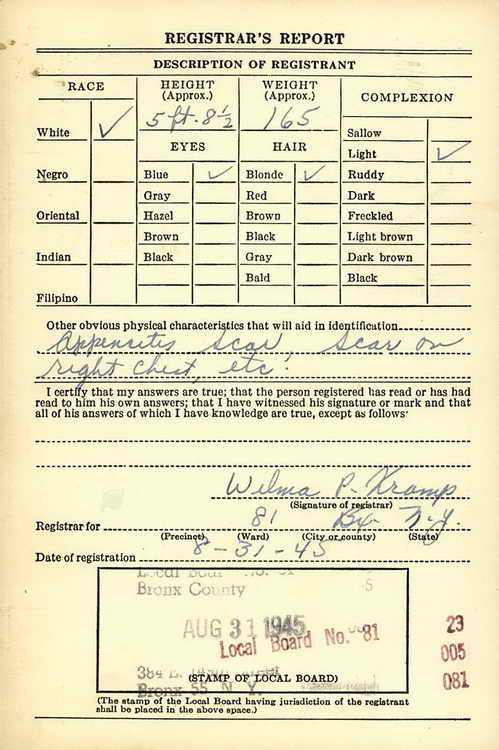 REGISTRAR'S REPORT
DESCRIPTION OF REGISTRANT
RACE
HEIGHT
(Approx.)
WEIGHT
(Approx.)
COMPLEXION
5 ft. 8 1/2
165
White ✓
Sallow
EYES
HAIR
Light ✓
Negro
Blue ✓
Blonde ✓
Ruddy
Gray
Red
Dark
Oriental
Hazel
Brown
Freckled
Brown
Black
Light brown
Indian
Black
Gray
Dark brown
Bald
Black
Filipino
Other obvious physical characteristics that will aid in identification
Appensites Scar, Scar on
right Chest, etc.
I certify that my answers are true; that the person registered has read or has had
read to him his own answers; that I have witnessed his signature or mark and that
all of his answers of which I have knowledge are true, except as follows:
Wilma P. Kramp
(Signature of registrar)
Registrar for 81 Bx N.Y.
(Precinct) (Ward) (City or county) (State)
Date of registration 8-31-45
Bronx County
AUG 31 1945
Local Board No. 81
23
005
081
384 E.
(STAMP OF LOCAL BOARD)
Bronx 55 N. Y.
(The stamp of the Local Board having jurisdiction of the registrant
shall be placed in the above space.)